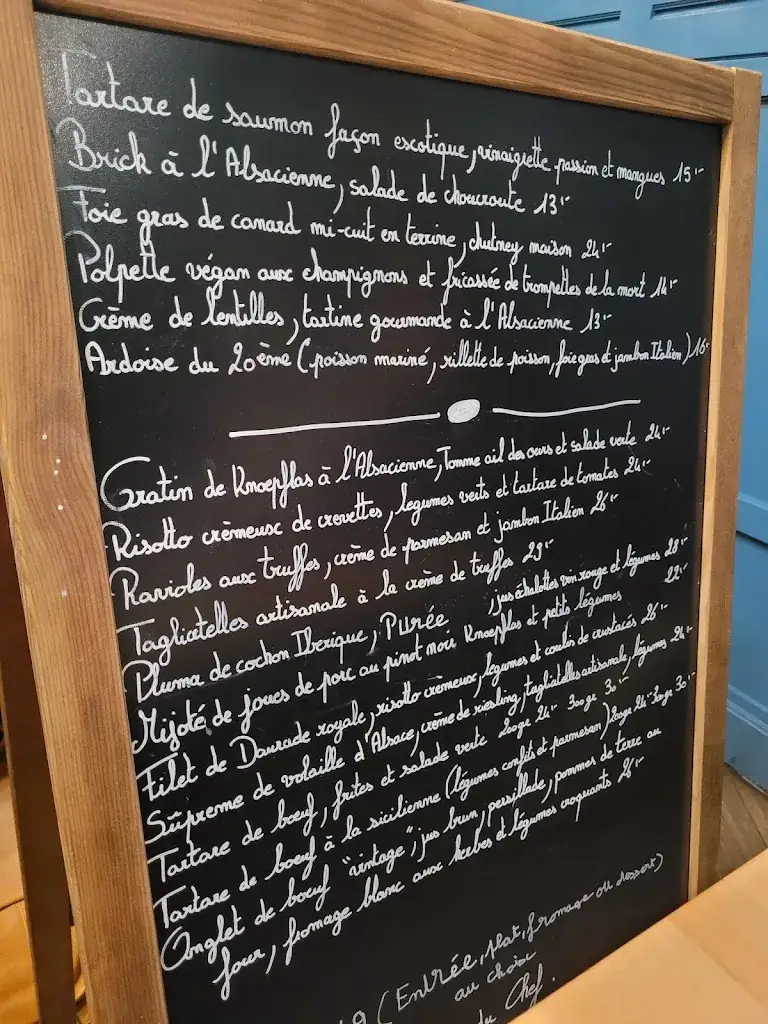 Tartare de saumon façon escotique, vinaigrette passion et mangues 15.-
Brick à l'Alsacienne, salade de choucroute 13.-
Foie gras de canard mi-cuit en terrine, chutney maison 24.-
Polpette végan aux champignons et fricassée de trompettes de la mort 14.-
Crème de lentilles, tartine gourmande à l'Alsacienne 13.-
Ardoise du 20ème (poisson mariné, rillette de poisson, foie gras et jambon Italien) 16.-
Gratin de Knoepflas à l'Alsacienne, Tomme ail des ours et salade verte 24.-
Risotto crèmeux de crevettes, légumes verts et tartare de tomates 24.-
Ravioles aux truffes, crème de parmesan et jambon Italien 26.-
Tagliatelles artisanale à la crème de truffes 29.-
Pluma de cochon Iberique, Purée, jus échalottes vin rouge et légumes 28.-
Mijoté de joues de porc au pinot noir Knoepflas et petits légumes 22.-
Filet de Daurade royale, risotto cremeux, légumes et coulis de crustacés 26.-
Suprême de volaille d'Alsace, crème de riesling, tagliatelles artisanale, légumes 24.-
Tartare de bœuf, frites et salade verte 200gr 24.- 300gr 30.-
Tartare de bœuf à la sicilienne (légumes confits et parmesan) 200gr 24.- 300gr 30.-
Onglet de bœuf "vintage", jus brun, persillade, pommes de terre au
four, fromage blanc aux herbes et légumes croquants 26.-
(Entrée, plat, fromage ou dessert)
au choix
du Chef.